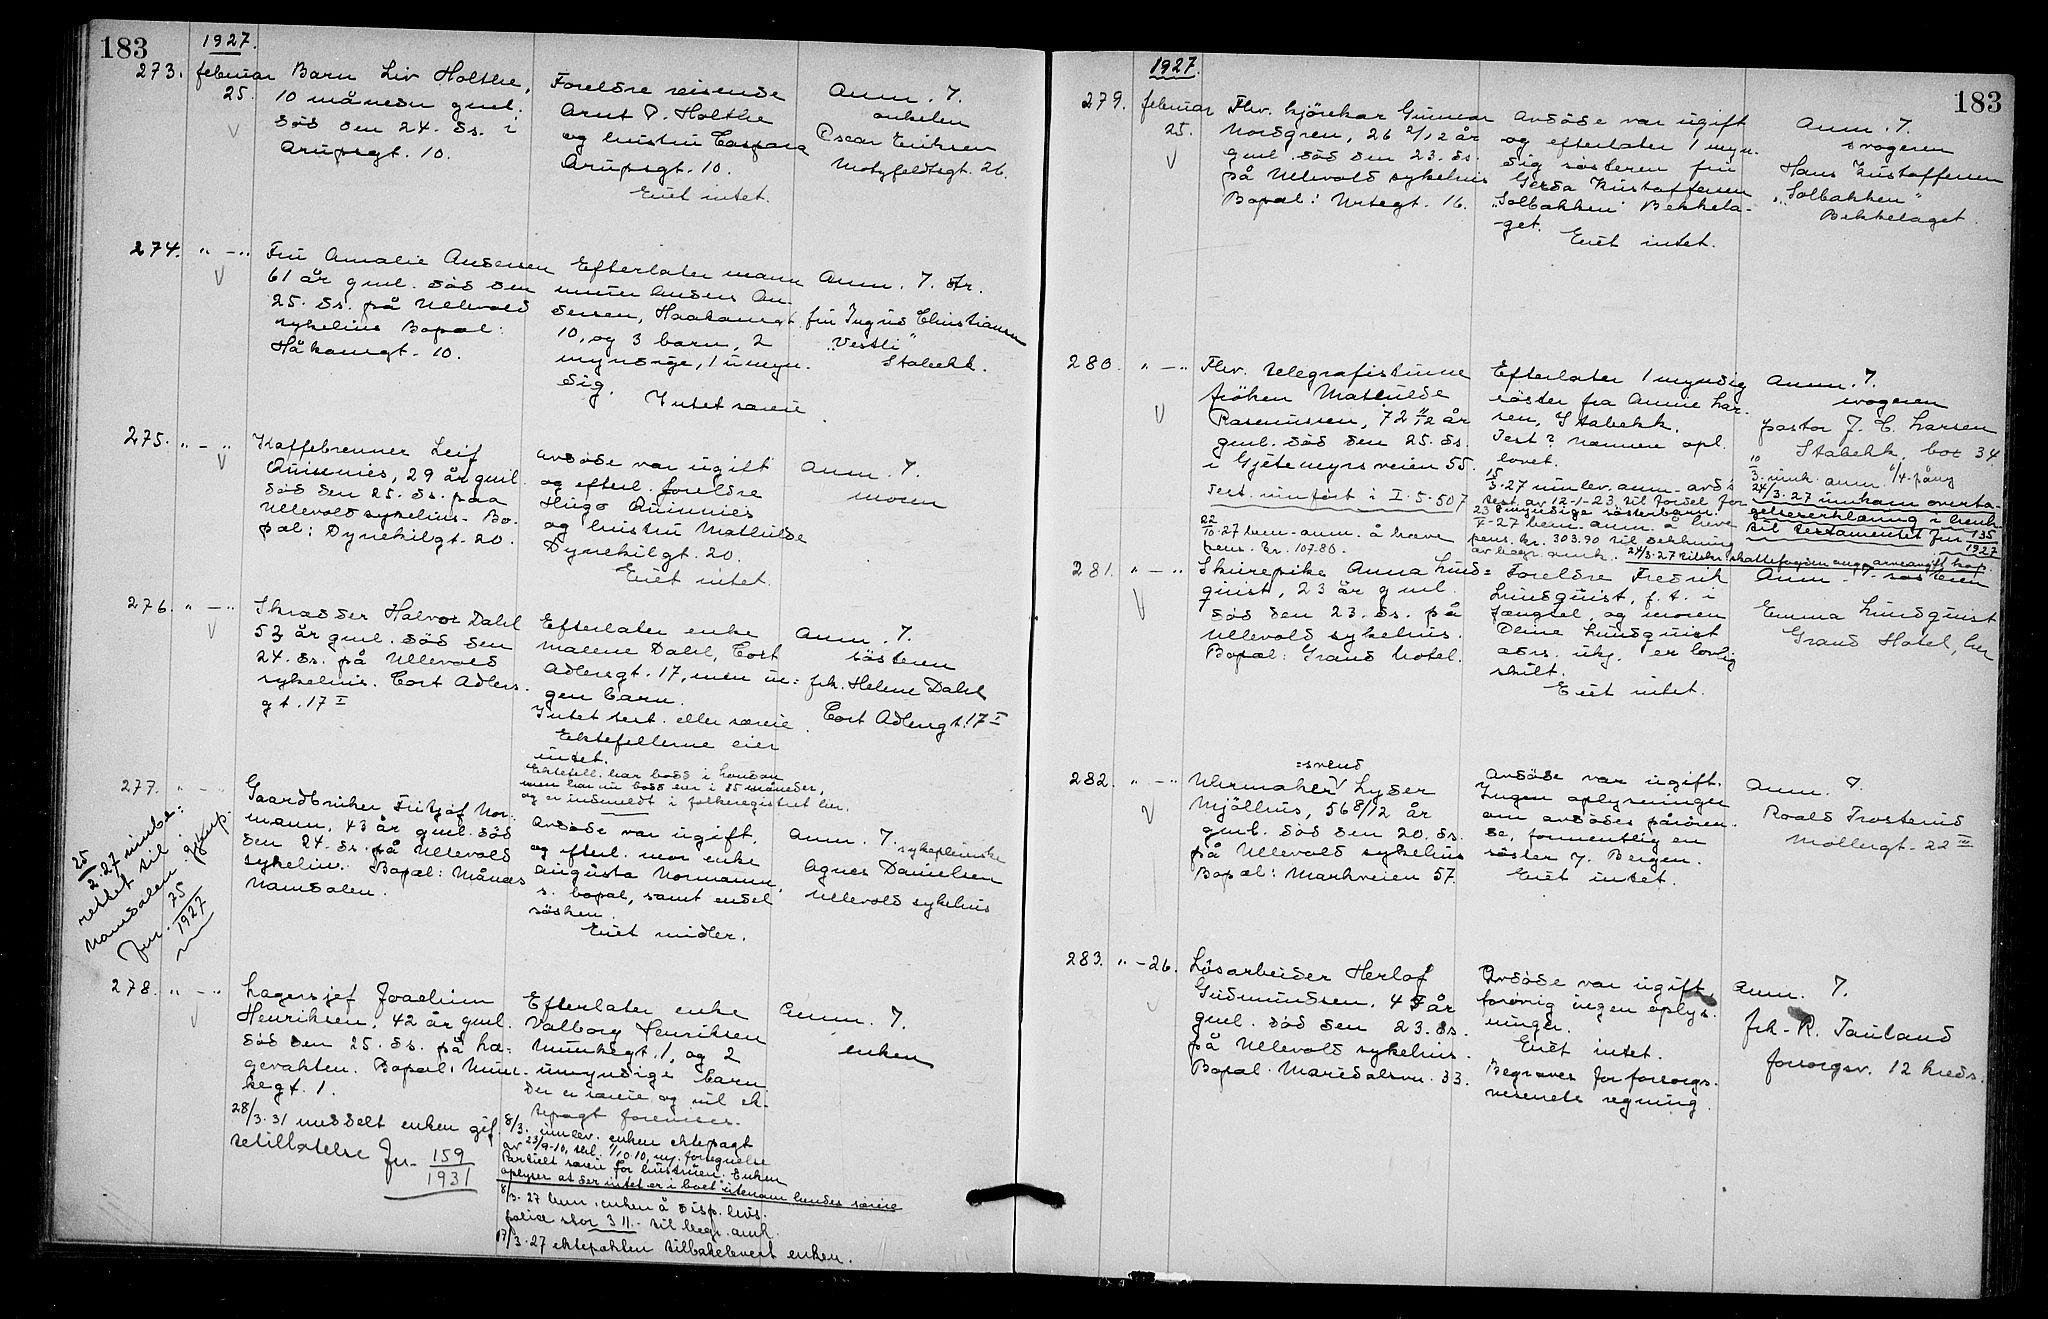 183
1927.
273. februar 25. Barn Liv Holthe,
10 måneder gml.
død den 24. ds. i
Arupsgt. 10.
Foreldre reisende
Arnt P. Holthe
og hustru Caspara
Arupsgt. 10.
Eiet intet.
Anm. 7.
onkelen
Oscar Eriksen
Motzfeldtsgt. 26.
274. " — " Fru Amalie Andersen
61 år gml. død den
25. ds. på Ullevold
sykehus Bopæl:
Håkonsgt. 10.
Efterlater mann
murer Anders An-
dersen, Haakonsgt.
10, og 3 barn, 2
myndige, 1 umyn-
dig.
Intet særeie
Anm. 7. dtr.
fru Ingrid Christiansen
„Vestli"
Stabekk.
275. " — " Kaffebrenner Leif
Quisenies, 29 år gml.
død den 25. ds. paa
Ullevold sykehus. Bo-
pæl: Dynekilgt. 20.
Avdøde var ugift
og efterl. foreldre
Hugo
og hustru Mathilde
Dynekilgt. 20.
Eiet intet.
Anm. 7.
moren
276. " — " Skrædder Halvor Dahl
53 år gml. død den
24. ds. på Ullevold
sykehus. Cort Adlers-
gt. 17 I
Efterlater enke
Malene Dahl, Cort
Adlersgt. 17, men in=
gen barn.
Intet test. eller særeie.
Ektefellerne eier
intet.
Ektefell. har bodd i London
men har nu bodd her i 25 måneder,
og er indmeldt i folkeregistret her.
Anm. 7.
søsteren
frk. Helene Dahl
Cort Adlersgt. 17 I
277. " — " Gaardbruker Fritjof Nor-
mann, 43 år gml. død
den 24. ds. på Ullevold
sykehus. Bopæl: Månes
Namdalen.
25/2.27 innbe:
rettet til
Namdalen
Jnr. 75/1927
Avdøde var ugift,
og efterl. mor enke
Augusta Normann,
s. bopæl, samt endel
søsken.
Eiet midler.
Anm. 7. sykepleierske
Agnes Danielsen
Ullevold sykehus
278. " — " Lagersjef Joachim
Henriksen, 42 år gml.
død den 25. ds. på Læ=
gevakten. Bopæl: Mun-
kegt. 1.
28/3.31 meddelt enken gif-
tetillatelse Jnr. 159/1931
Efterlater enke
Valborg Henriksen
Munkegt. 1, og 2
umyndige barn
Der er særeie og vil ek-
tepagt forevises.
8/3. innlev. enken ektepagt
av 23/9-10, tgl. 1/10 10,
Partielt særeie for hustruen. Enken
oplyser at der intet er i boet utenom hendes særeie
8/3.27 bem. enken å disp. livs.
police stor 311.- til begr. omk.
17/3.27 ektepakten tilbakelevert enken.
Anm. 7.
enken
183
1927.
279. februar 25. Fhv. kjørekar Gunnar
Nordgren, 26 2/12 år
gml. død den 23. ds.
på Ullevold sykehus
Bopæl: Urtegt. 16.
Avdøde var ugift
og efterlater 1 myn-
dig søsteren fru
Gerda Kristoffersen
„Solbakken" Bekkela-
get.
Eiet intet.
Anm. 7.
svogeren
Hans Kristoffersen
„Solbakken"
Bekkelaget
280. " — " Fhv. telegrafistinne
frøken Mathilde
Rasmussen, 72 11/12 år
gml. død den 25. ds.
i Gjetemyrsveien 55.
Test. innført i I. 5. 507
22/10-27 bem. anm. å hæve
pens. kr. 107.80.
Efterlater 1 myndig
søster fru Annie Lar-
sen, Stabekk.
Test? nærmere opl.
lovet.
15/3.27 innlev. anm. avd's
test. av 12-1-23 til fordel for
myndige søsterbarn.
23/5-27 bem. anm. å heve
pens. kr. 303.90 til dekning
av begr. omk. 24/3.27 tilskr. skattefogden ang. arveavgift
Anm. 7.
svogeren
pastor J. C. Larsen
Stabekk, box 34
10/3. innk. anm.
24/3.27 innkom overta-
gelseserklæring i henh.
til testamentet Jnr 135/1927
281. " — " Skurepike Anna Lind=
quist, 23 år gml.
død den 23. ds. på
Ullevold sykehus.
Bopæl: Grand hotel.
Foreldre Fredrik
Lindquist, f. t. i
fængsel, og moren
Oline Lindquist
adrs. ukj. er lovlig
skilt.
Eiet intet.
Anm. 7. søsteren
Emma Lindquist
Grand Hotel, her
282. " — " Urmaker =svend Lyder
Mjølhus, 56 8/12 år
gml. død den 20. ds.
på Ullevold sykehus
Bopæl: Markveien 57.
Avdøde var ugift.
Ingen oplysninger
om avdødes pårøren-
de, formentlig en
søster i Bergen.
Eiet intet.
Anm. P
Roald Trosterud
Møllergt. 22 III
283. " — 26. Løsarbeider Herlof
Gudmundsen, 47 år
gml. død den 23. ds.
på Ullevold sykehus.
Bopæl. Maridalsvn. 33.
Avdøde var ugift,
forøvrig ingen oplys-
ninger.
Eiet intet.
Begraves for forsorgs-
vesenets regning.
Anm. 7.
frk. R. Tauland
forsorgsv. 12 kreds.